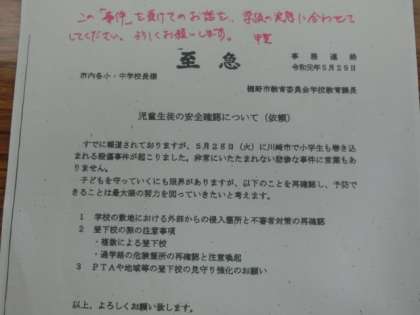 この「事件」を受けてのお話を、学級の実態に合わせて
してください。よろしくお願いします。
至急
事務連絡
令和元年5月29日
市内各小・中学校長様
裾野市教育委員会学校教育課長
児童生徒の安全確認について（依頼）
すでに報道されておりますが、５月２８日（火）に川崎市で小学生も巻き込
まれる殺傷事件が起こりました。非常にいたたまれない悲惨な事件に言葉もあ
りません。
子どもを守っていくにも限界がありますが、以下のことを再確認し、予防で
きることは最大限の努力を図っていきたいと考えます。
１　学校の敷地における外部からの侵入箇所と不審者対策の再確認
２　登下校の際の注意事項
・複数による登下校
・通学路の危険箇所の再確認と注意喚起
３　ＰＴＡや地域等の登下校の見守り強化のお願い
以上、よろしくお願い致します。